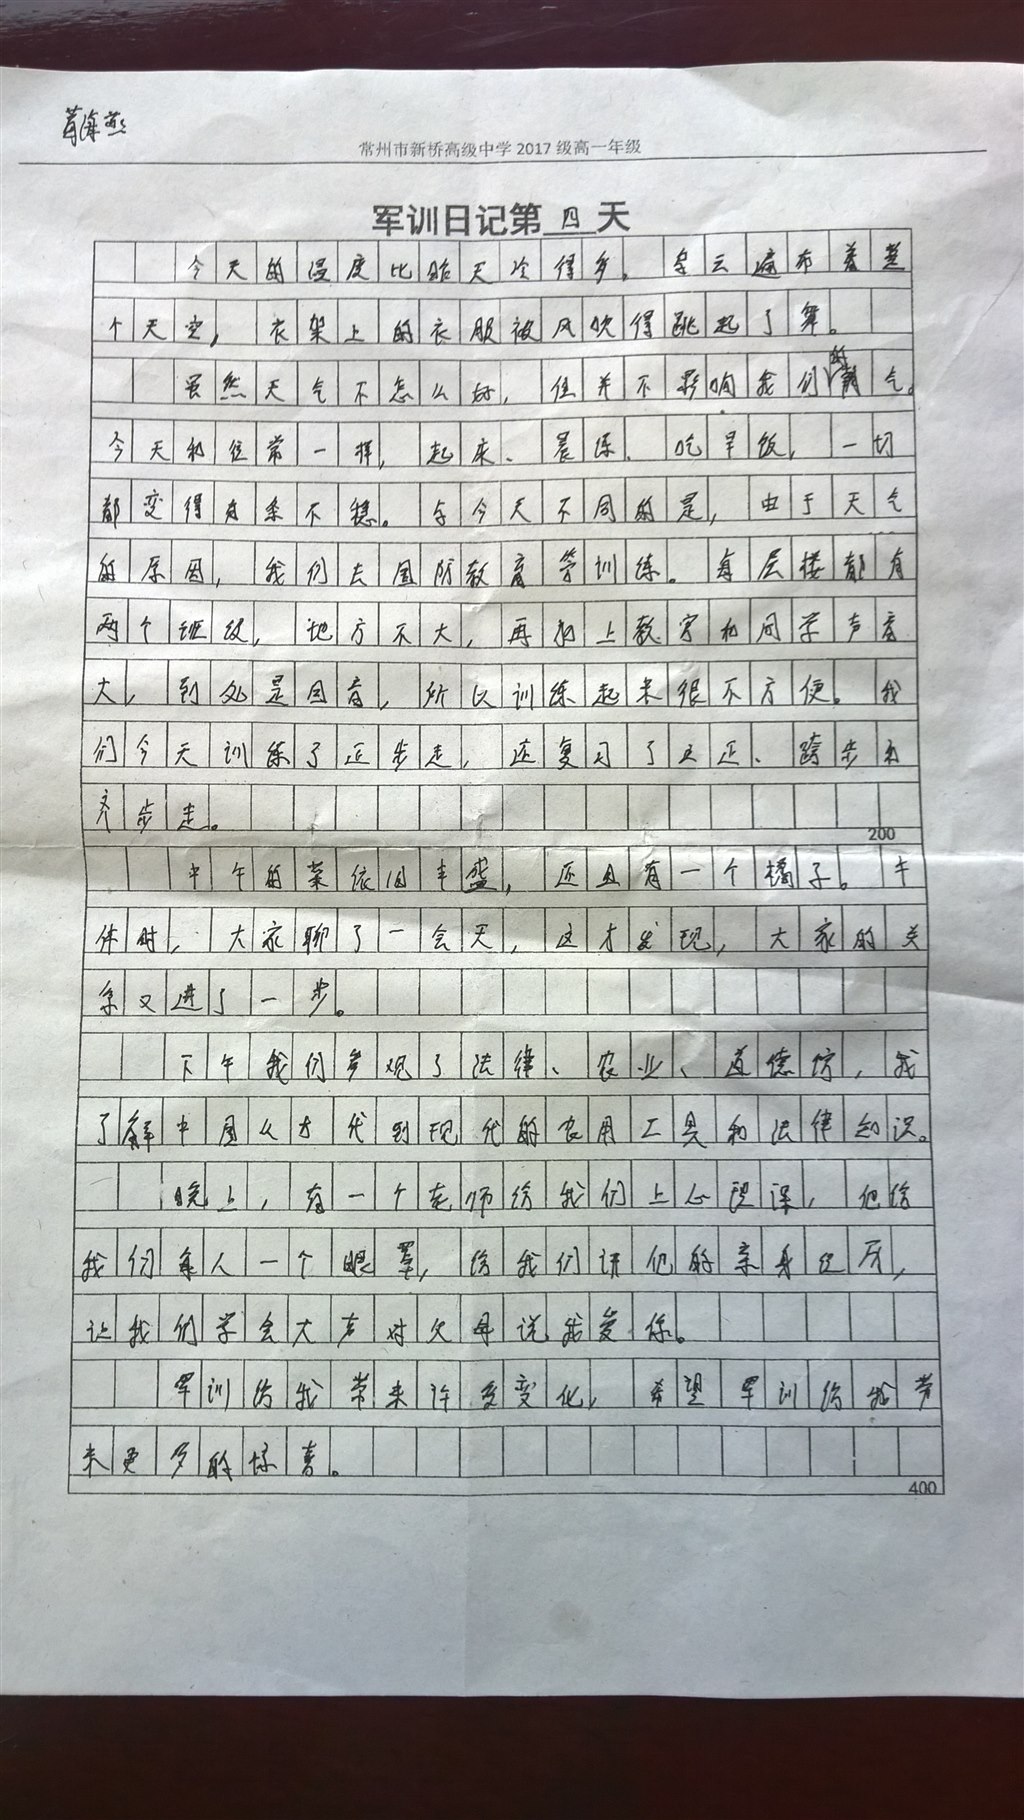 海燕
常州市新桥高级中学2017级高一年级
军训日记第四天
今天的温度比昨天冷得多。乌云遍布着整
个天空,衣架上的衣服被风吹得跳起了舞。
虽然天气不怎么好,但并不影响我们的朝气。
今天和往常一样,起床、晨练、吃早饭,一切
都变得有条不稳。与今天不同的是,由于天气
的原因,我们去国防教育学训练。每层楼都有
两个班级,地方不大,再加上教官和同学声音
大,到处是回音,所以训练起来很不方便。我
们今天训练了正步走,还复习了立正、跨步和
齐步走。
200
中午的菜依旧丰盛,还且有一个橘子。午
休时,大家聊了一会天,这才发现,大家的关
系又进了一步。
下午我们参观了法律、农业、道德馆,我
了解中国从古代到现代的农用工具和法律知识。
晚上,有一个老师给我们上心理课,他给
我们每人一个眼罩,给我们讲他的亲身经历,
让我们学会大声对父母说我爱你。
军训给我带来许多变化,希望军训给我带
来更多的惊喜。
400